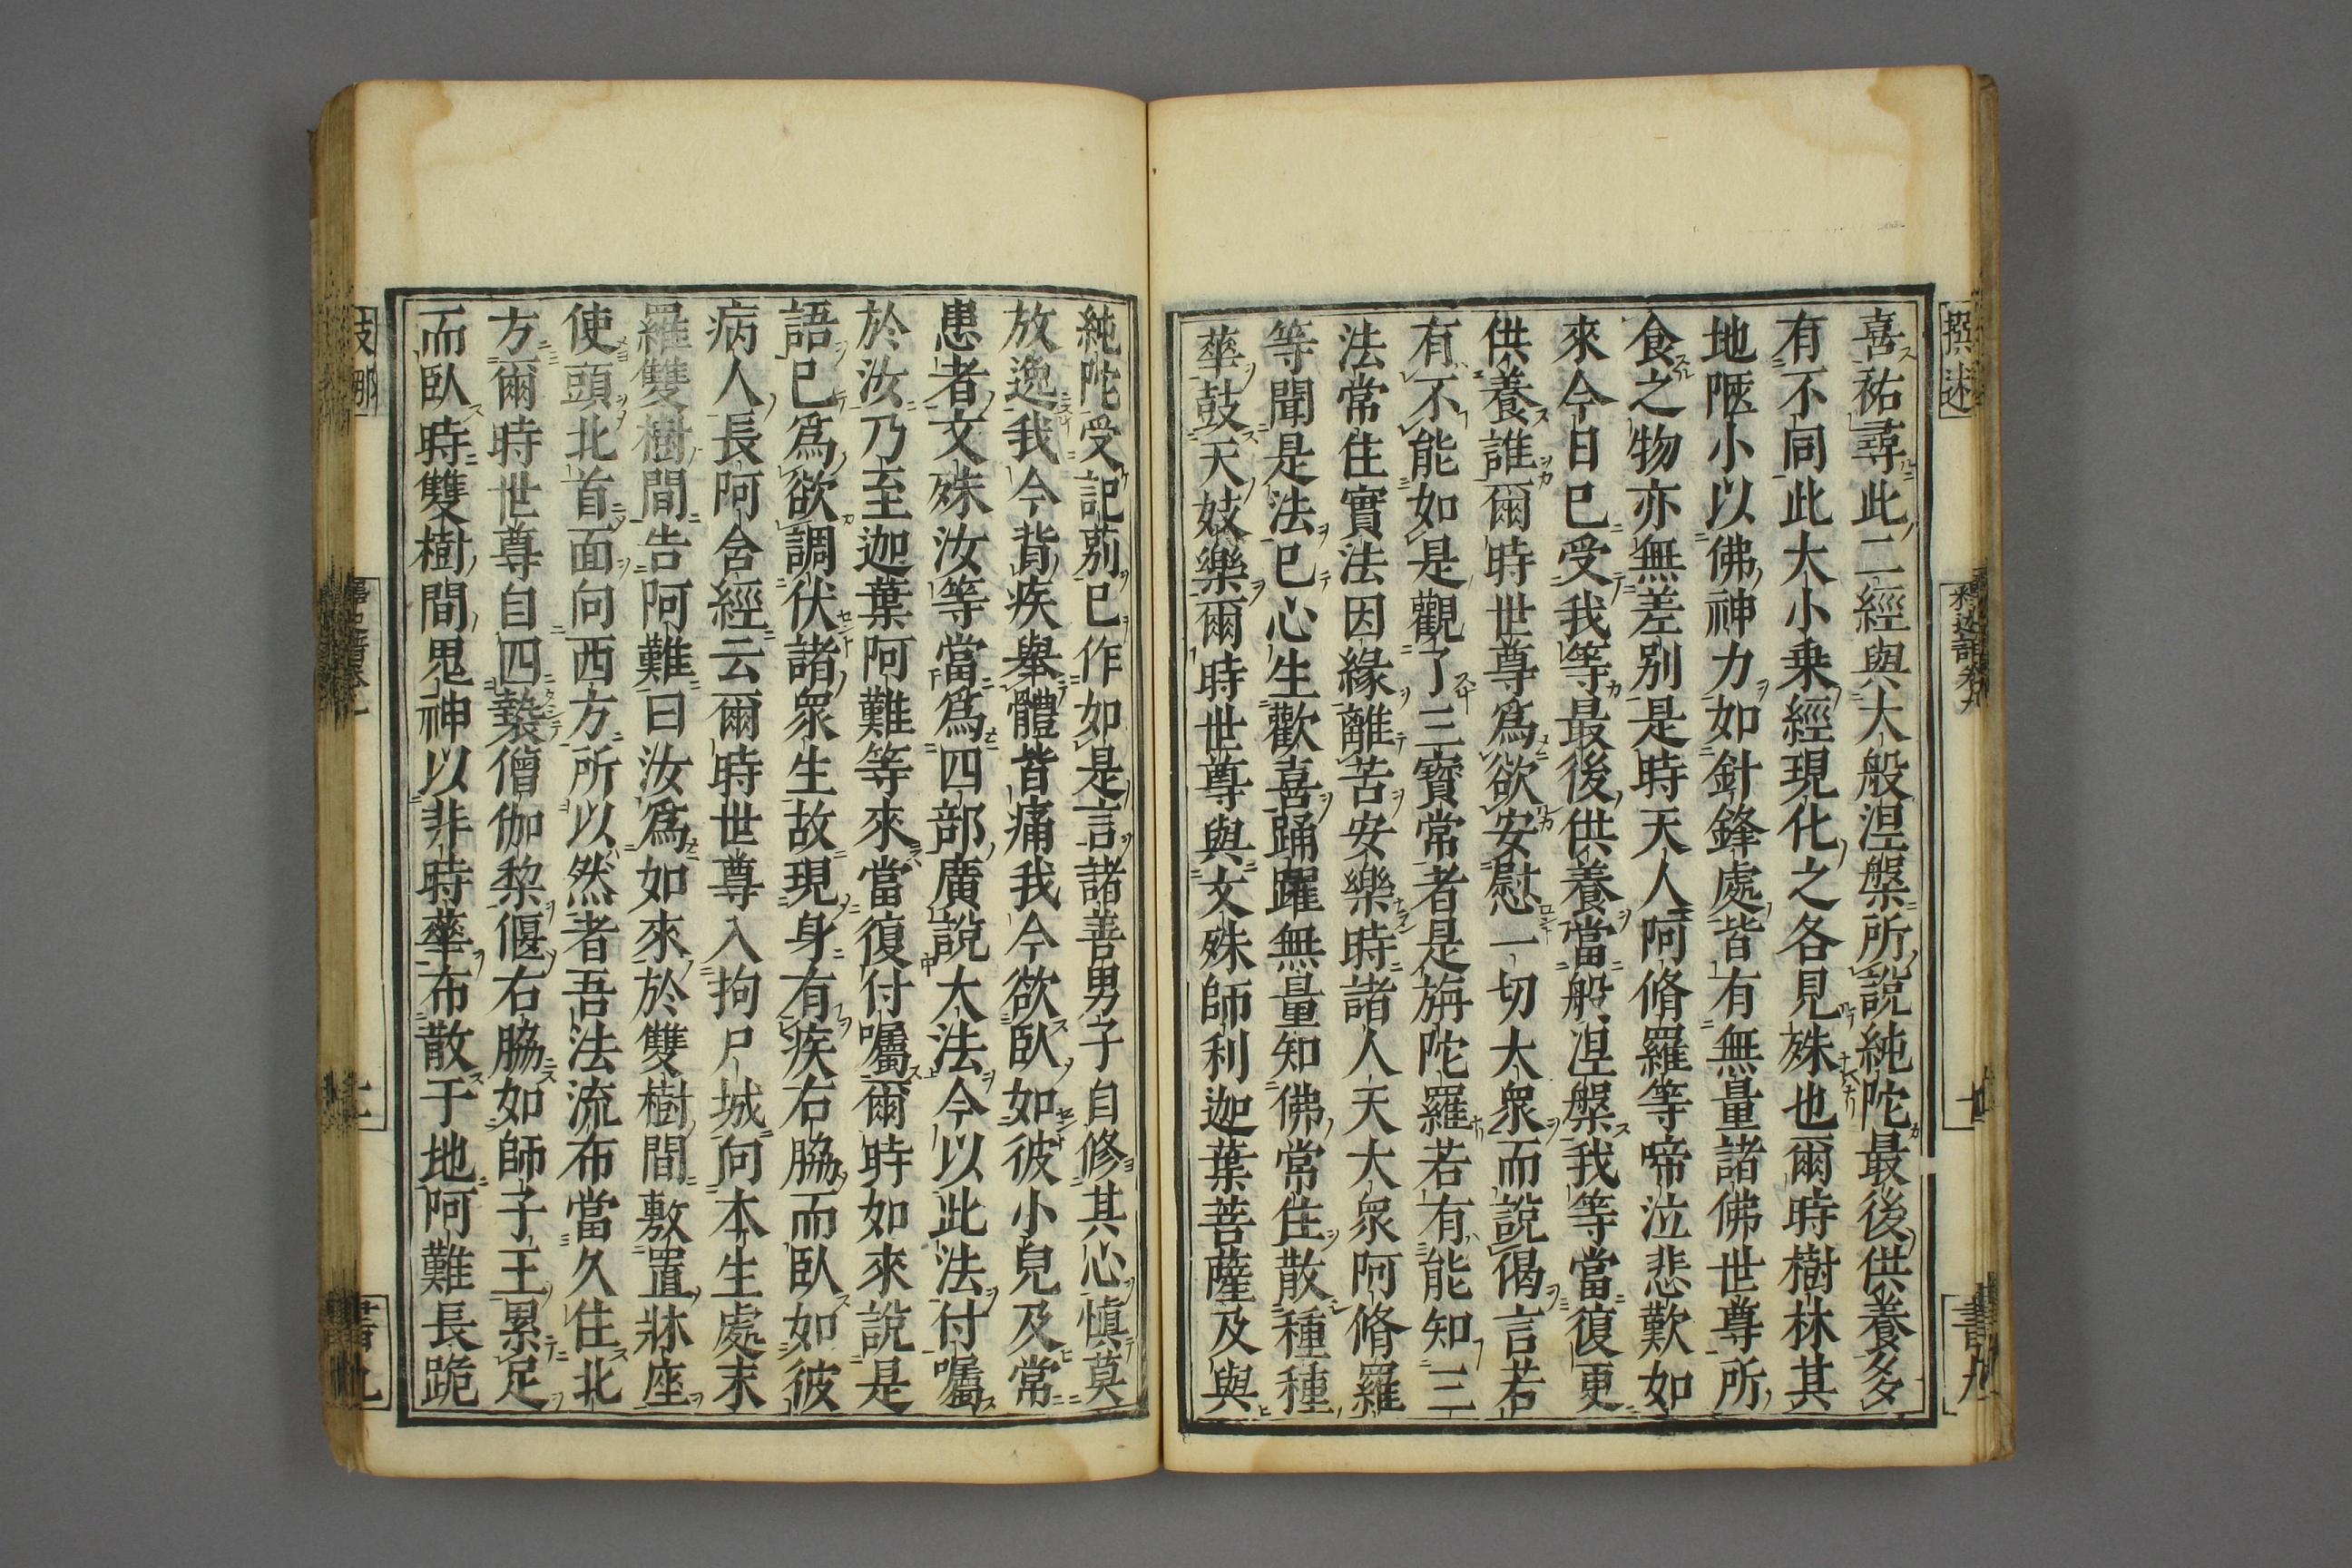 撰述
釋迦譜卷九
書九
喜祐尋此二經與大般涅槃所說純陀最後供養多
有不同此大小乗經現化之各見殊也爾時樹林其
地陿小以佛神力如針鋒處皆有無量諸佛世尊所
食之物亦無差別是時天人阿脩羅等啼泣悲歎如
來今日已受我等最後供養當般涅槃我等當復更
供養誰爾時世尊爲欲安慰一切大衆而說偈言若
有不能如是觀了三寶常者是旃陀羅若有能知三
法常住實法因緣離苦安樂時諸人天大衆阿脩羅
等聞是法已心生歡喜踊躍無量知佛常住散種種
華鼓天妓樂爾時世尊與文殊師利迦葉菩薩及與
純陀受記莂已作如是言諸善男子自修其心慎莫
放逸我今背疾舉體皆痛我今欲臥如彼小兒及常
患者文殊汝等當爲四部廣說大法今以此法付囑
於汝乃至迦葉阿難等來當復付囑爾時如來說是
語已爲欲調伏諸衆生故現身有疾右脇而臥如彼
病人長阿含經云爾時世尊入拘尸城向本生處末
羅雙樹間告阿難曰汝爲如來於雙樹間敷置牀座
使頭北首面向西方所以然者吾法流布當久住北
方爾時世尊自四㲲僧伽棃偃右脇如師子王累足
而臥時雙樹間鬼神以非時華布散于地阿難長跪